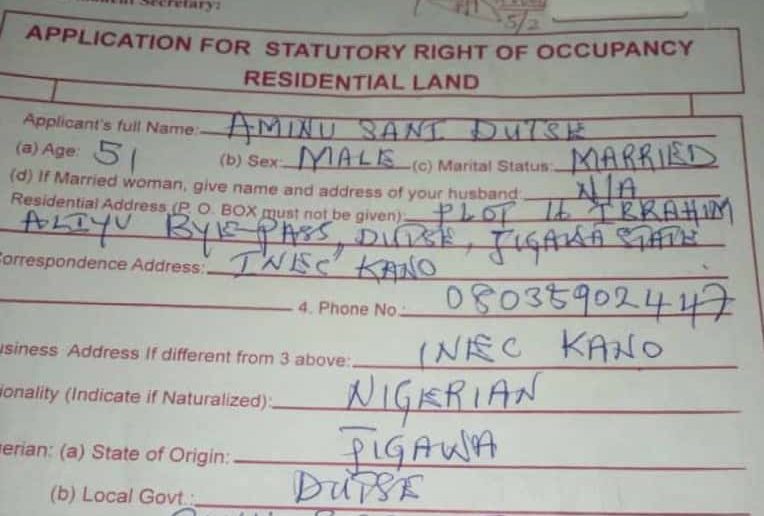 Secretary:
5/2
APPLICATION FOR STATUTORY RIGHT OF OCCUPANCY
RESIDENTIAL LAND
Applicant's full Name: AMINU SANI DUTSE
(a) Age: 51 (b) Sex: MALE (c) Marital Status: MARRIED
(d) If Married woman, give name and address of your husband: N/A
Residential Address (P. O. BOX must not be given): PLOT 16 IBRAHIM
ALIYU BYE-PASS, DUTSE, JIGAWA STATE
orrespondence Address: INEC KANO
4. Phone No.: 08035902447
usiness Address If different from 3 above: INEC KANO
ionality (Indicate if Naturalized): NIGERIAN
gerian: (a) State of Origin: JIGAWA
(b) Local Govt.: DUTSE